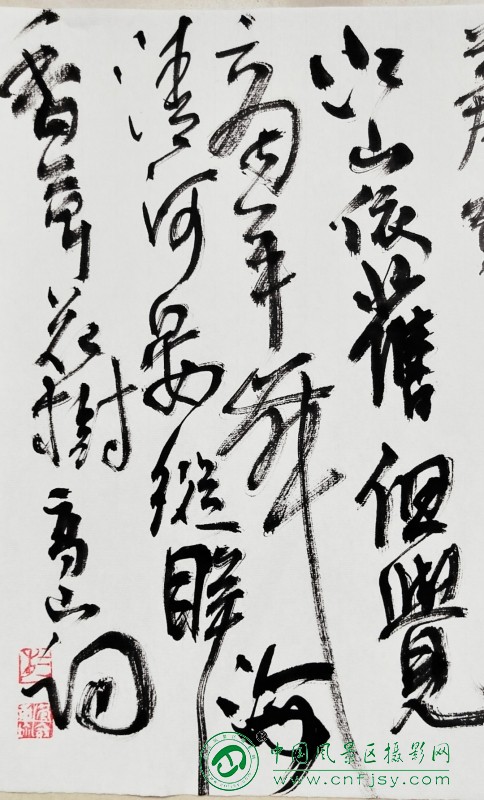 江山依舊但覺
年海
清河晏縱眸
香草花樹高山詞
中国风景区摄影网
www.cnfjsy.com